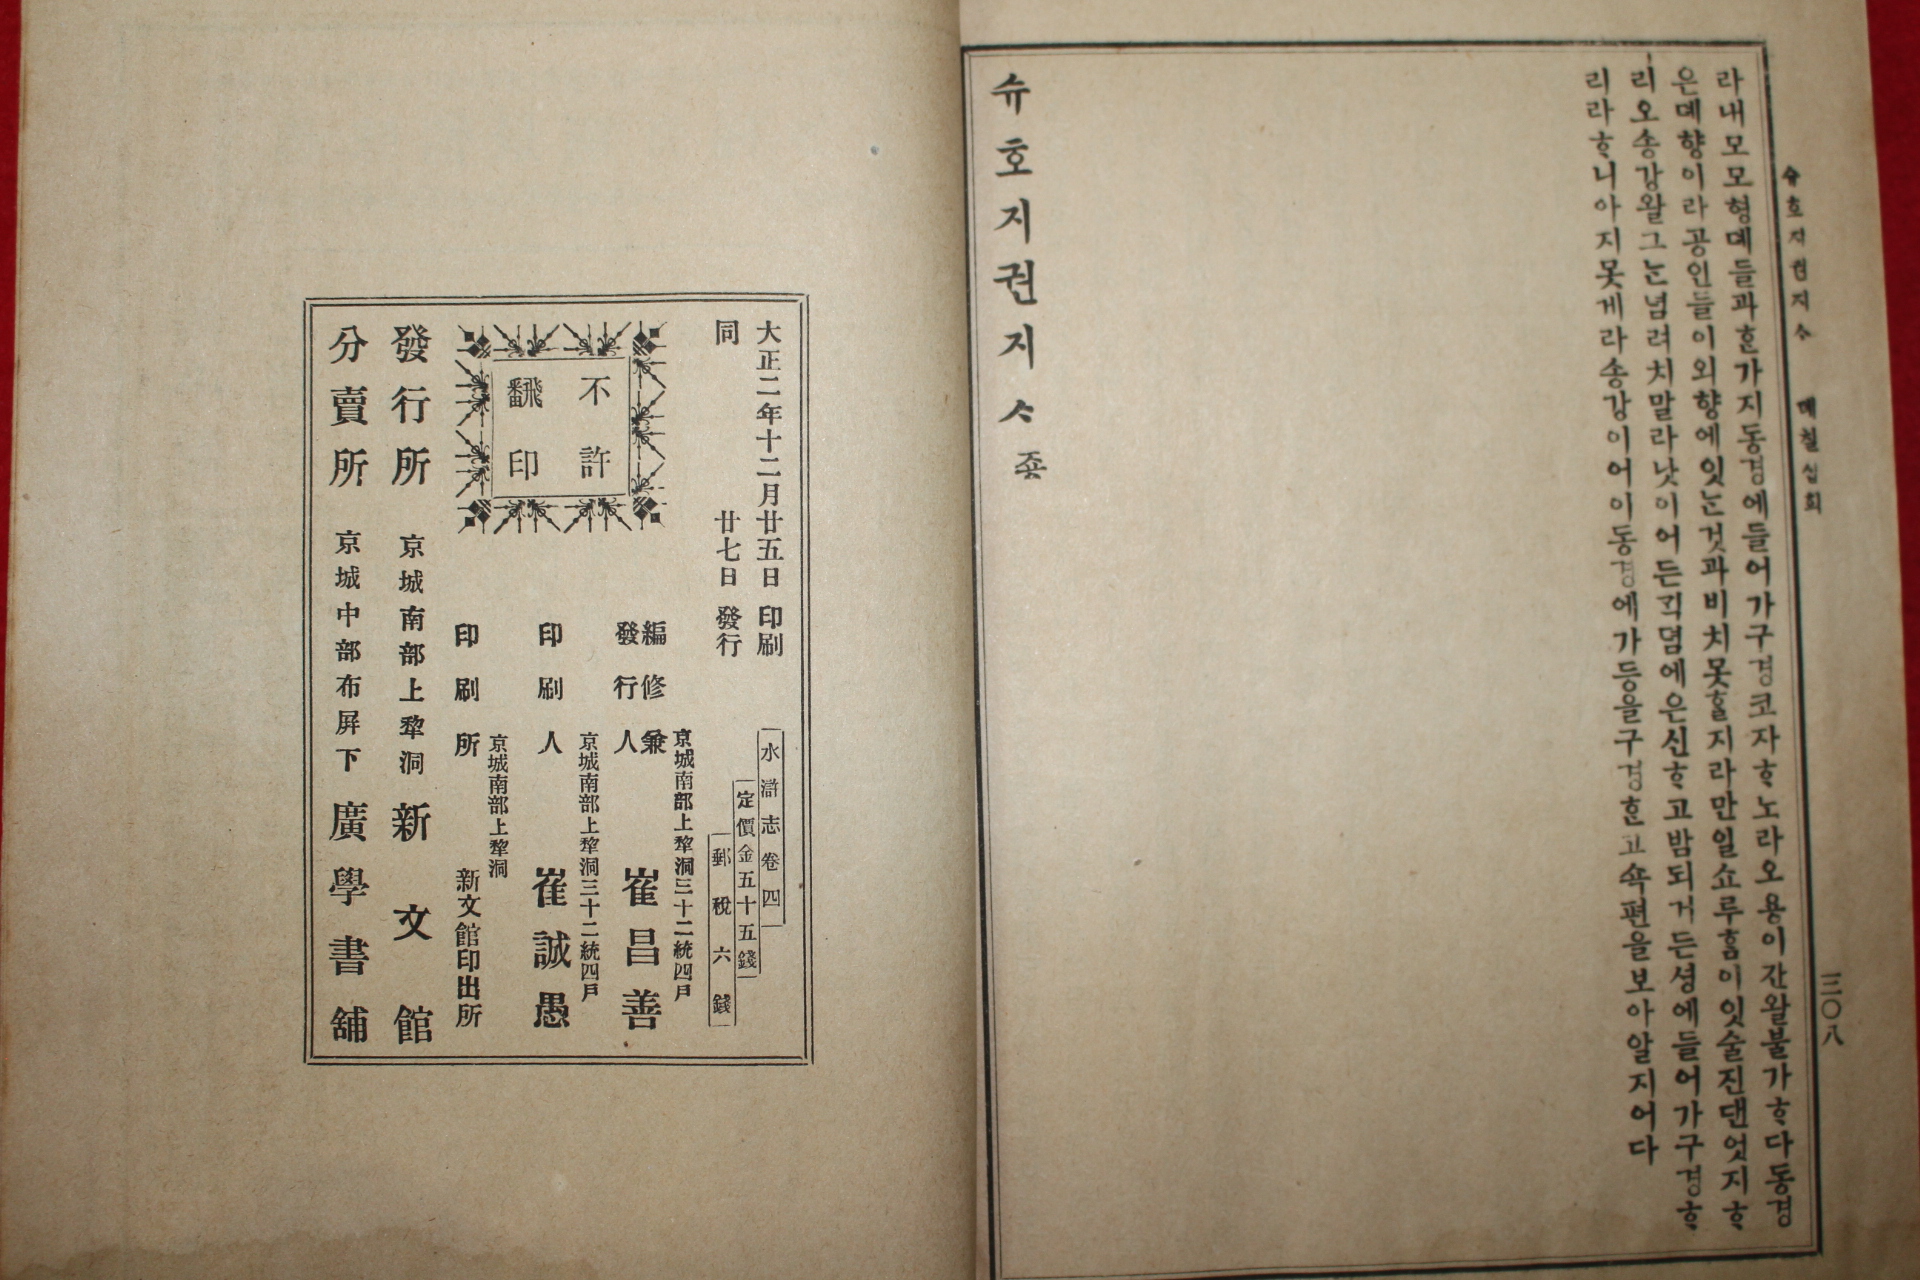 슈호지권지ᄉ 뎨칠십회 三〇八
라내모모형뎨들과ᄒᆞᆫ가지동경에들어가구경코자ᄒᆞ노라오용이잔왈불가ᄒᆞ다동경
은뎨향이라공인들이외향에잇ᄂᆞᆫ것과비치못ᄒᆞᆯ지라만일쇼루홈이잇슬진댄엇지ᄒᆞ
리오송강왈그ᄂᆞᆫ념려치말라낫이어든ᄀᆡᆨ뎜에은신ᄒᆞ고밤되거든셩에들어가구경ᄒᆞ
리라ᄒᆞ니아지못게라송강이어이동경에가등을구경ᄒᆞᆫ고쇽편을보아알지어다
슈호지권지ᄉ 죵
大正二年十二月廿五日 印刷
同 廿七日 發行
水滸志卷四
定價金五十五錢
郵稅六錢
不許
飜印
京城南部上犂洞三十二統四戶
編修兼
發行人 崔昌善
京城南部上犂洞三十二統四戶
印刷人 崔誠愚
京城南部上犂洞
印刷所 新文館印出所
發行所 京城南部上犂洞 新文館
分賣所 京城中部布屛下 廣學書舖